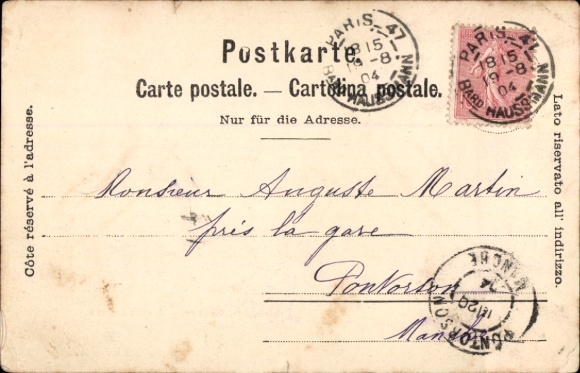 Postkarte.
Carte postale. — Cartolina postale.
Nur für die Adresse.
Côte réservé à l'adresse.
Lato riservato all' indirizzo.
PARIS_47
1815
19-8
04
BARD HAUSSMANN
PARIS_47
1815
19-8
04
BARD HAUSSMANN
Monsieur Auguste Martin
près la gare
Pontorson
Manche
PONTORSON
MANCHE